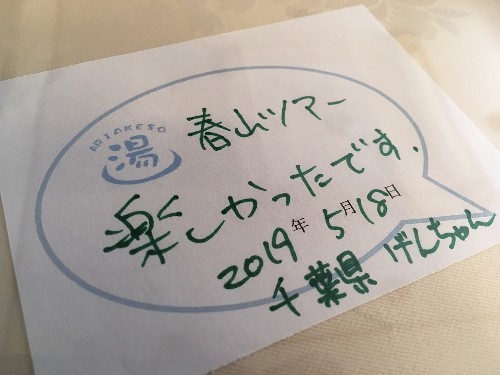 ARIAKESO
湯
春山ツアー
楽しかったです.
2019年5月18日
千葉県 げんちゃん